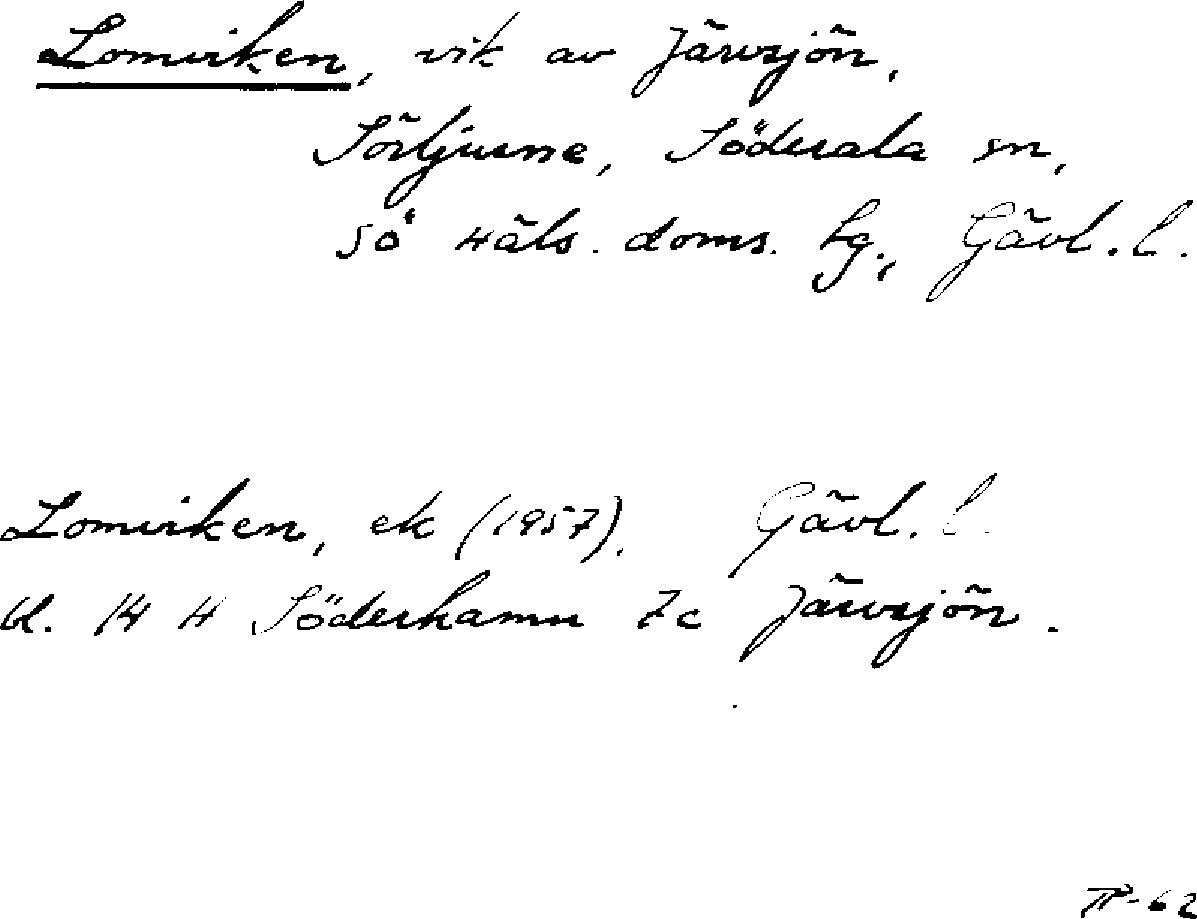 Lomviken, vik av Järvsjön,
Sörljusne, Söderala sn,
sö Häls. doms. tg., Gävl. l.
Lomviken, ek (1957). Gävl. l.
bl. 14 H Söderhamn 7c Järvsjön.
-62